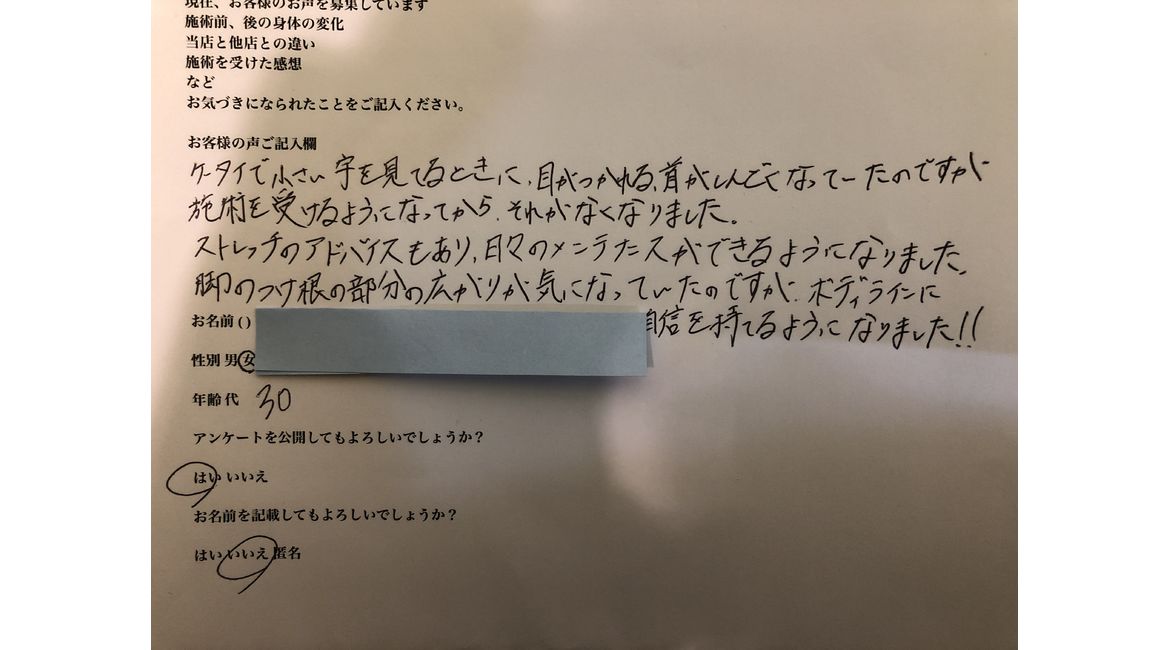 現在、お客様のお声を募集しています
施術前、後の身体の変化
当店と他店との違い
施術を受けた感想
など
お気づきになられたことをご記入ください。
お客様の声ご記入欄
ケータイで小さい字を見てるときに、目がつかれる、首がしんどくなっていたのですが
施術を受けるようになってから、それがなくなりました。
ストレッチのアドバイスもあり、日々のメンテナスができるようになりました。
脚のつけ根の部分の広がりが気になっていたのですが、ボディラインに
自信を持てるようになりました!!
お名前 ()
性別 男 女
年齢 代 30
アンケートを公開してもよろしいでしょうか?
はい いいえ
お名前を記載してもよろしいでしょうか?
はい いいえ 匿名